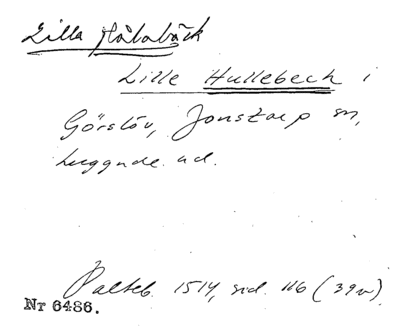 Lilla Hålabäck
Lille Hullebeck i
Görslöv, Jonstorp sn,
Luggude hd.
Palteb. 1514, sid. 116 (39v).
Nr 6486.